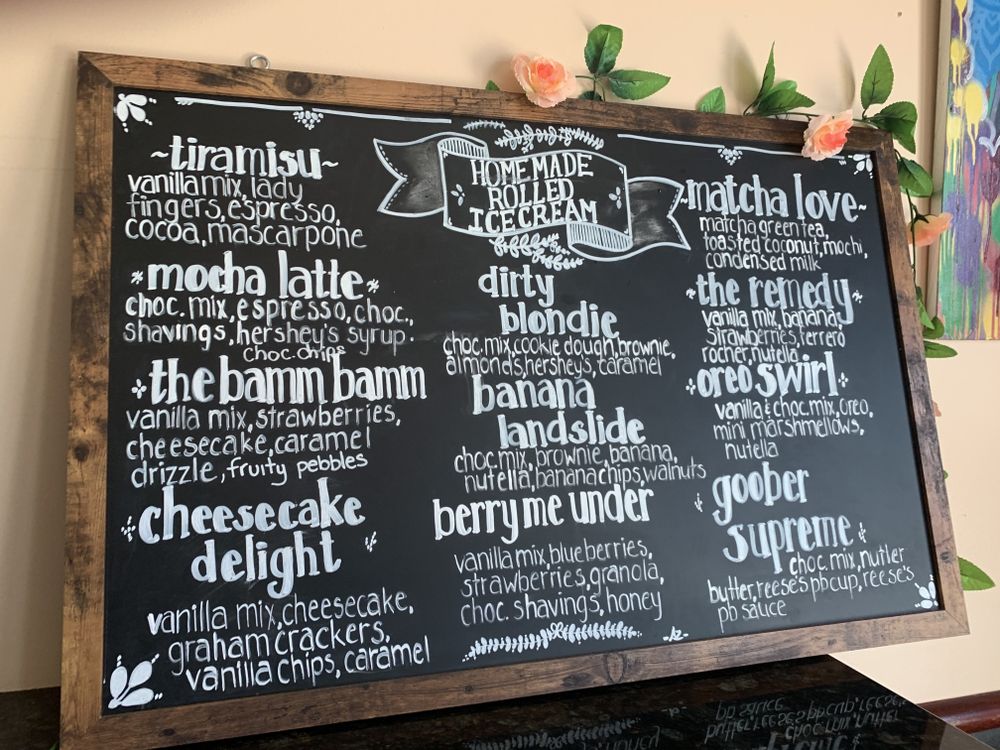 ~tiramisu~
vanilla mix, lady
fingers, espresso,
cocoa, mascarpone
mocha latte
choc. mix, espresso, choc.,
shavings, hershey's syrup.
choc. chips
the bamm bamm
vanilla mix, strawberries,
cheesecake, caramel
drizzle, fruity pebbles
cheesecake
delight
vanilla mix, cheesecake,
graham crackers,
vanilla chips, caramel
HOMEMADE
ROLLED
ICE CREAM
dirty
blondie
choc. mix, cookie dough, brownie,
almonds, hershey's, caramel
banana
landslide
choc. mix, brownie, banana,
nutella, banana chips, walnuts
berry me under
vanilla mix, blueberries,
strawberries, granola,
choc. shavings, honey
~matcha love~
matcha green tea,
toasted coconut, mochi,
condensed milk
the remedy
vanilla mix, banana,
strawberries, ferrero
rocher, nutella
oreo swirl
vanilla & choc. mix, oreo,
mini marshmellows,
nutella
goober
supreme
choc. mix, nutter
butter, reese's pb cup, reese's
pb sauce